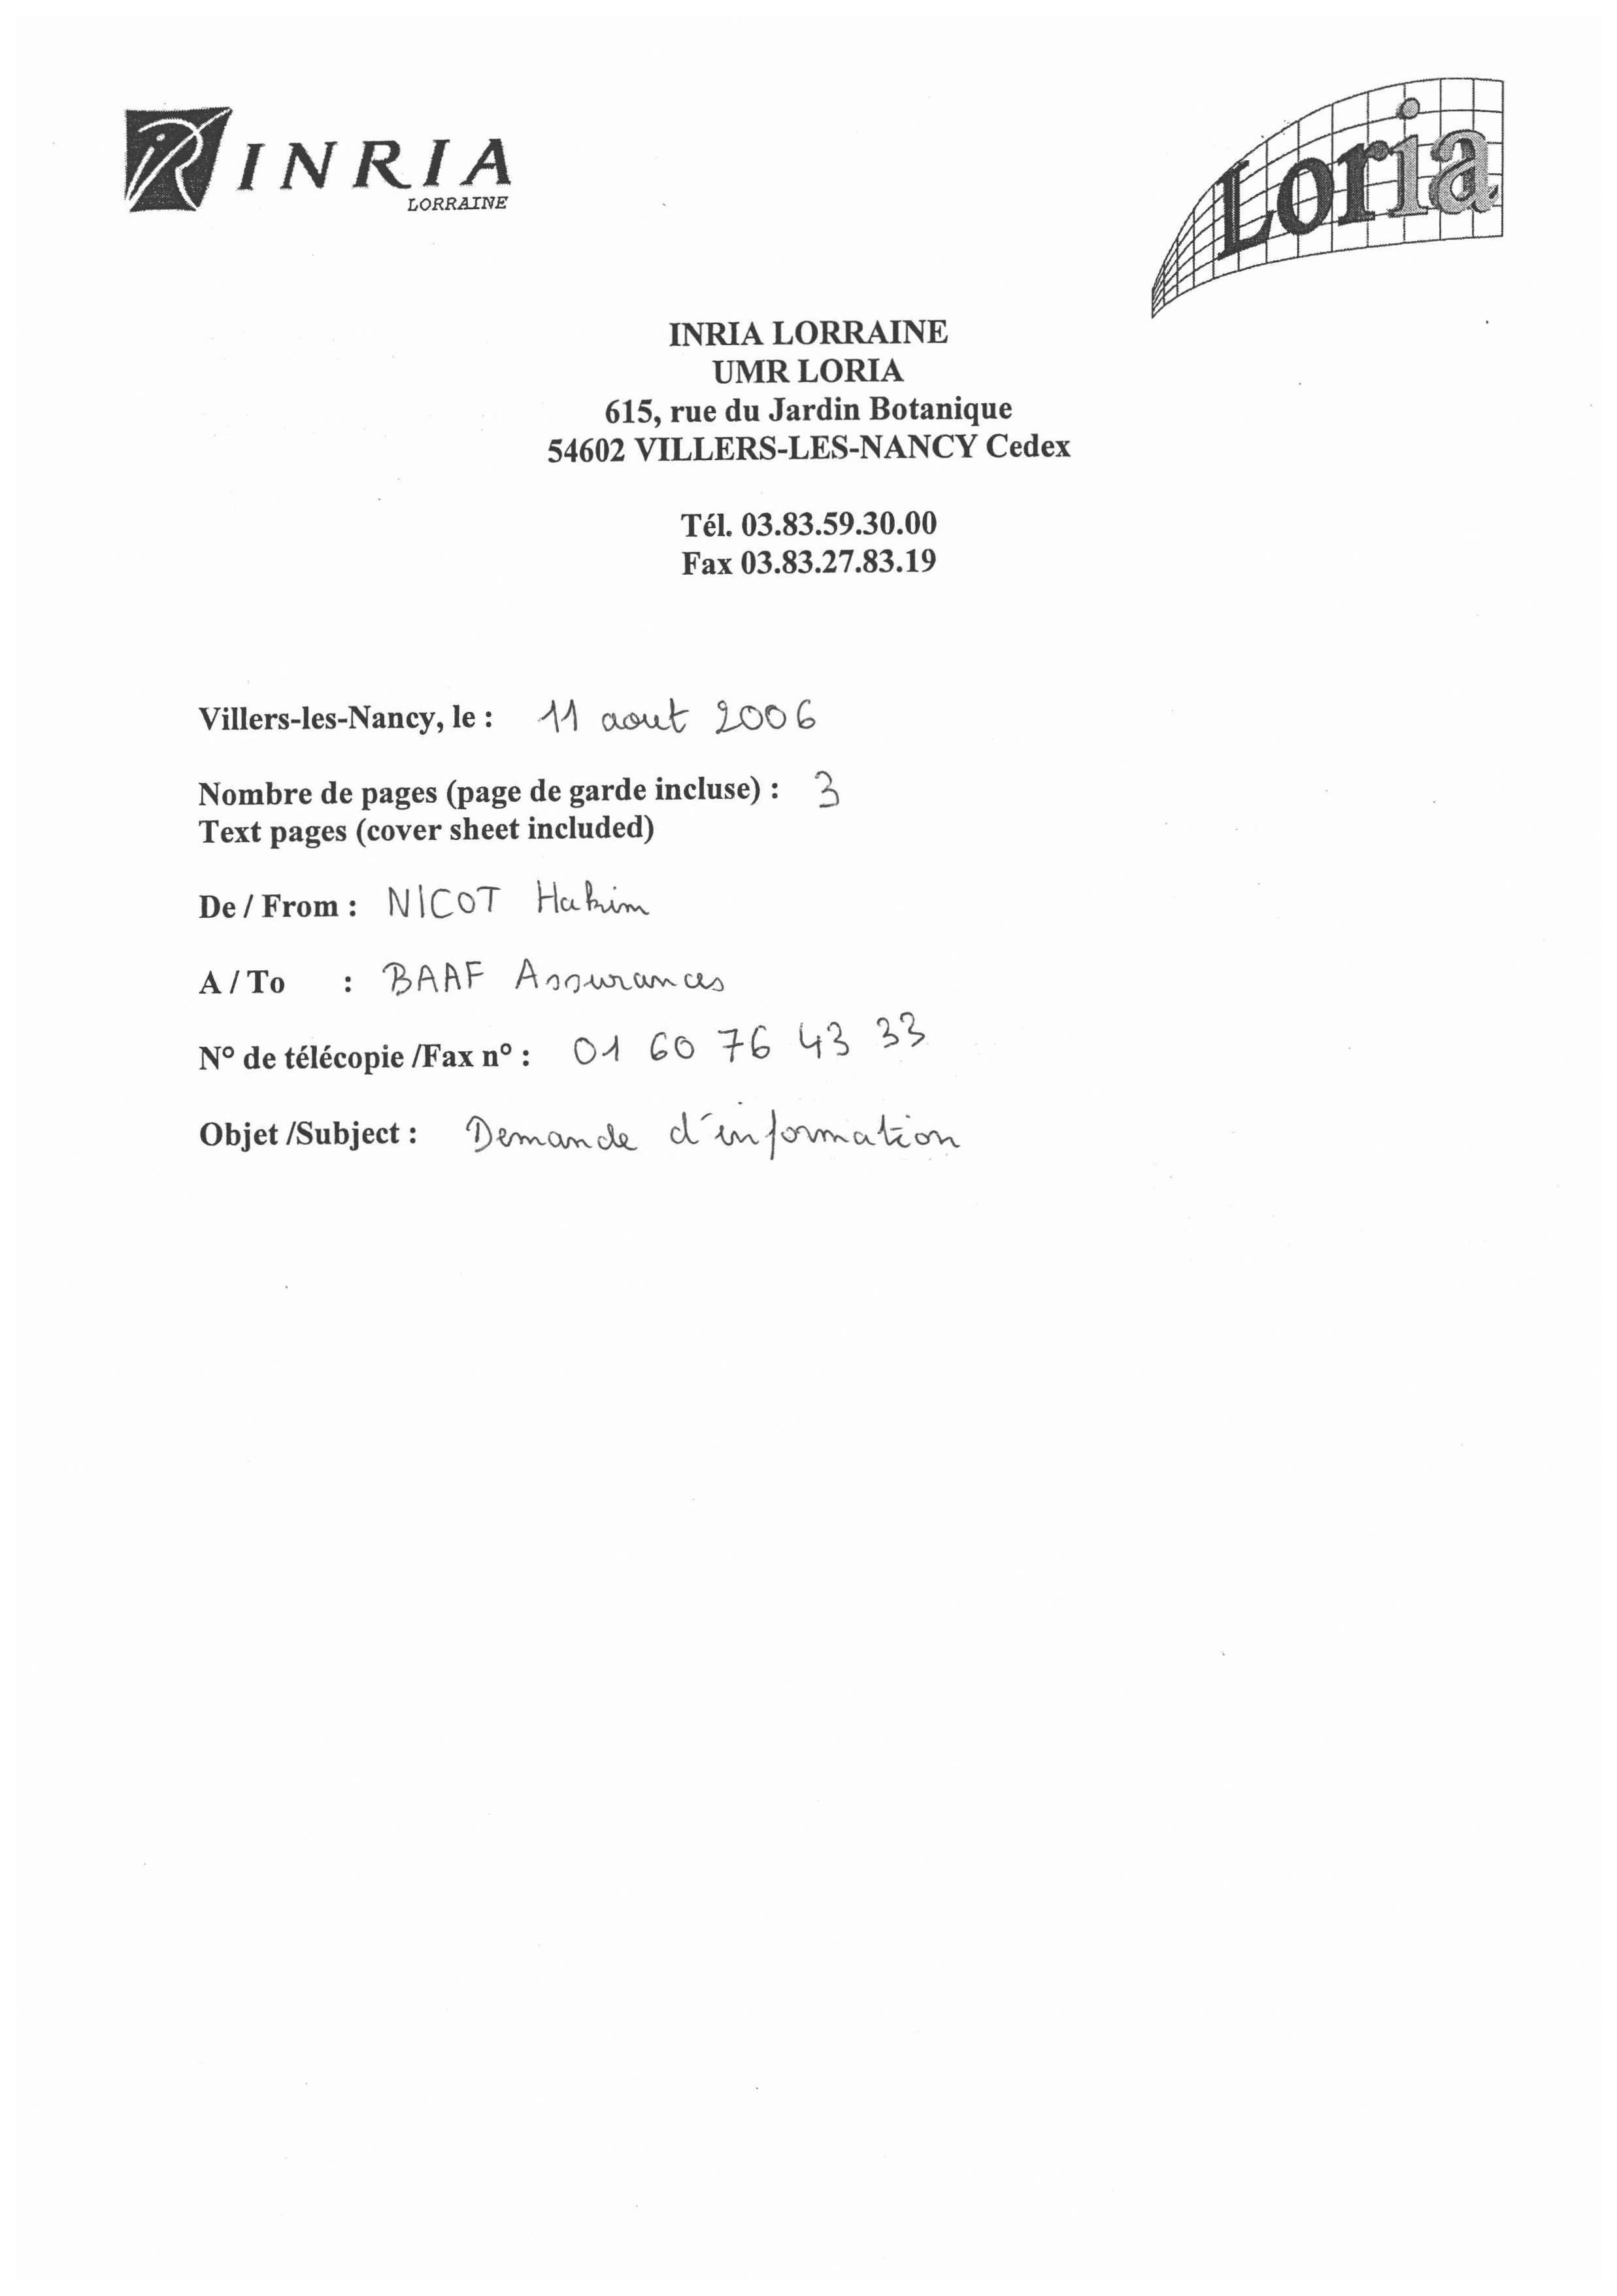 INRIA
LORRAINE
Loria
INRIA LORRAINE
UMR LORIA
615, rue du Jardin Botanique
54602 VILLERS-LES-NANCY Cedex
Tél. 03.83.59.30.00
Fax 03.83.27.83.19
Villers-les-Nancy, le : 11 aout 2006
Nombre de pages (page de garde incluse) : 3
Text pages (cover sheet included)
De / From : NICOT Hakim
A / To : BAAF Assurances
N° de télécopie /Fax n° : 01 60 76 43 33
Objet /Subject : Demande d'information